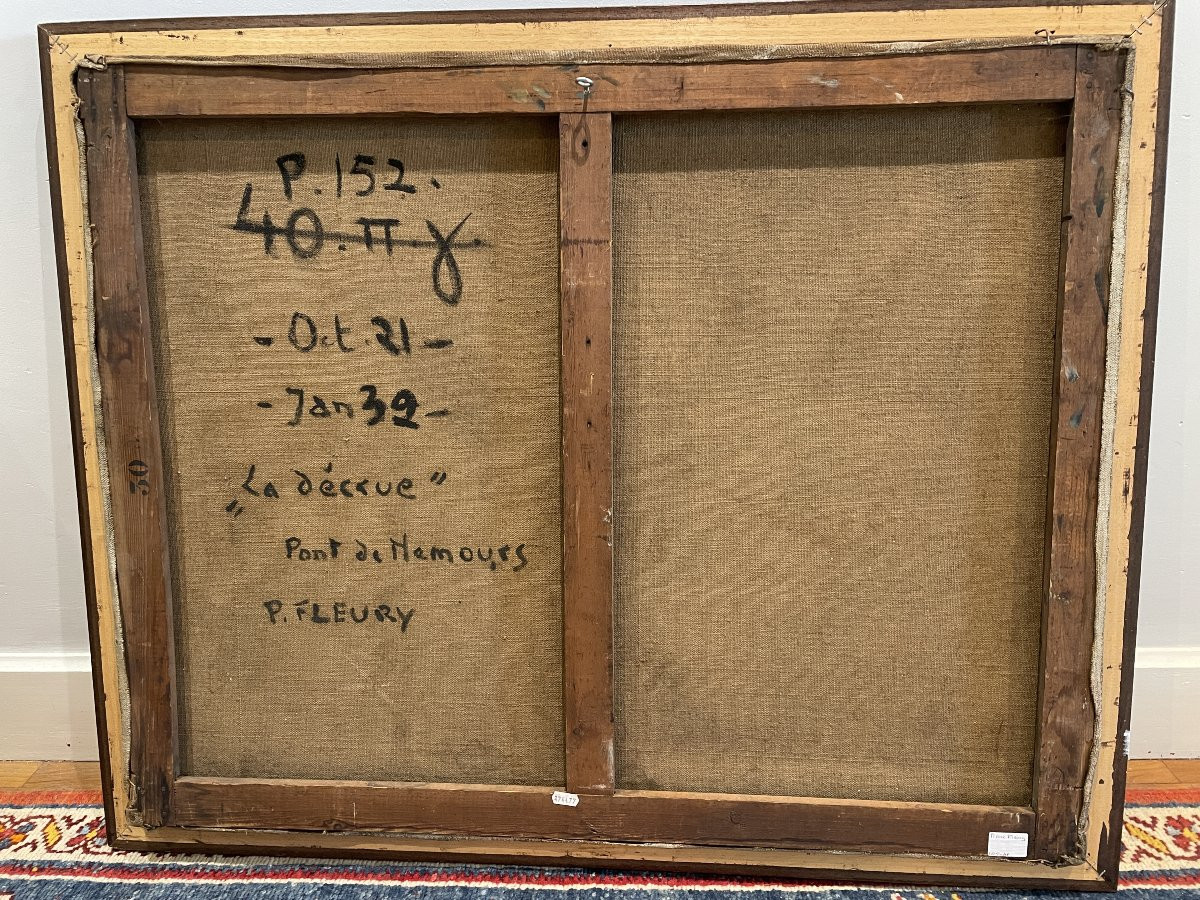 P. 152.
40. π. γ
- Oct. 21 -
- Jan 39 -
"La décrue"
Pont de Nemours
P. FLEURY
50